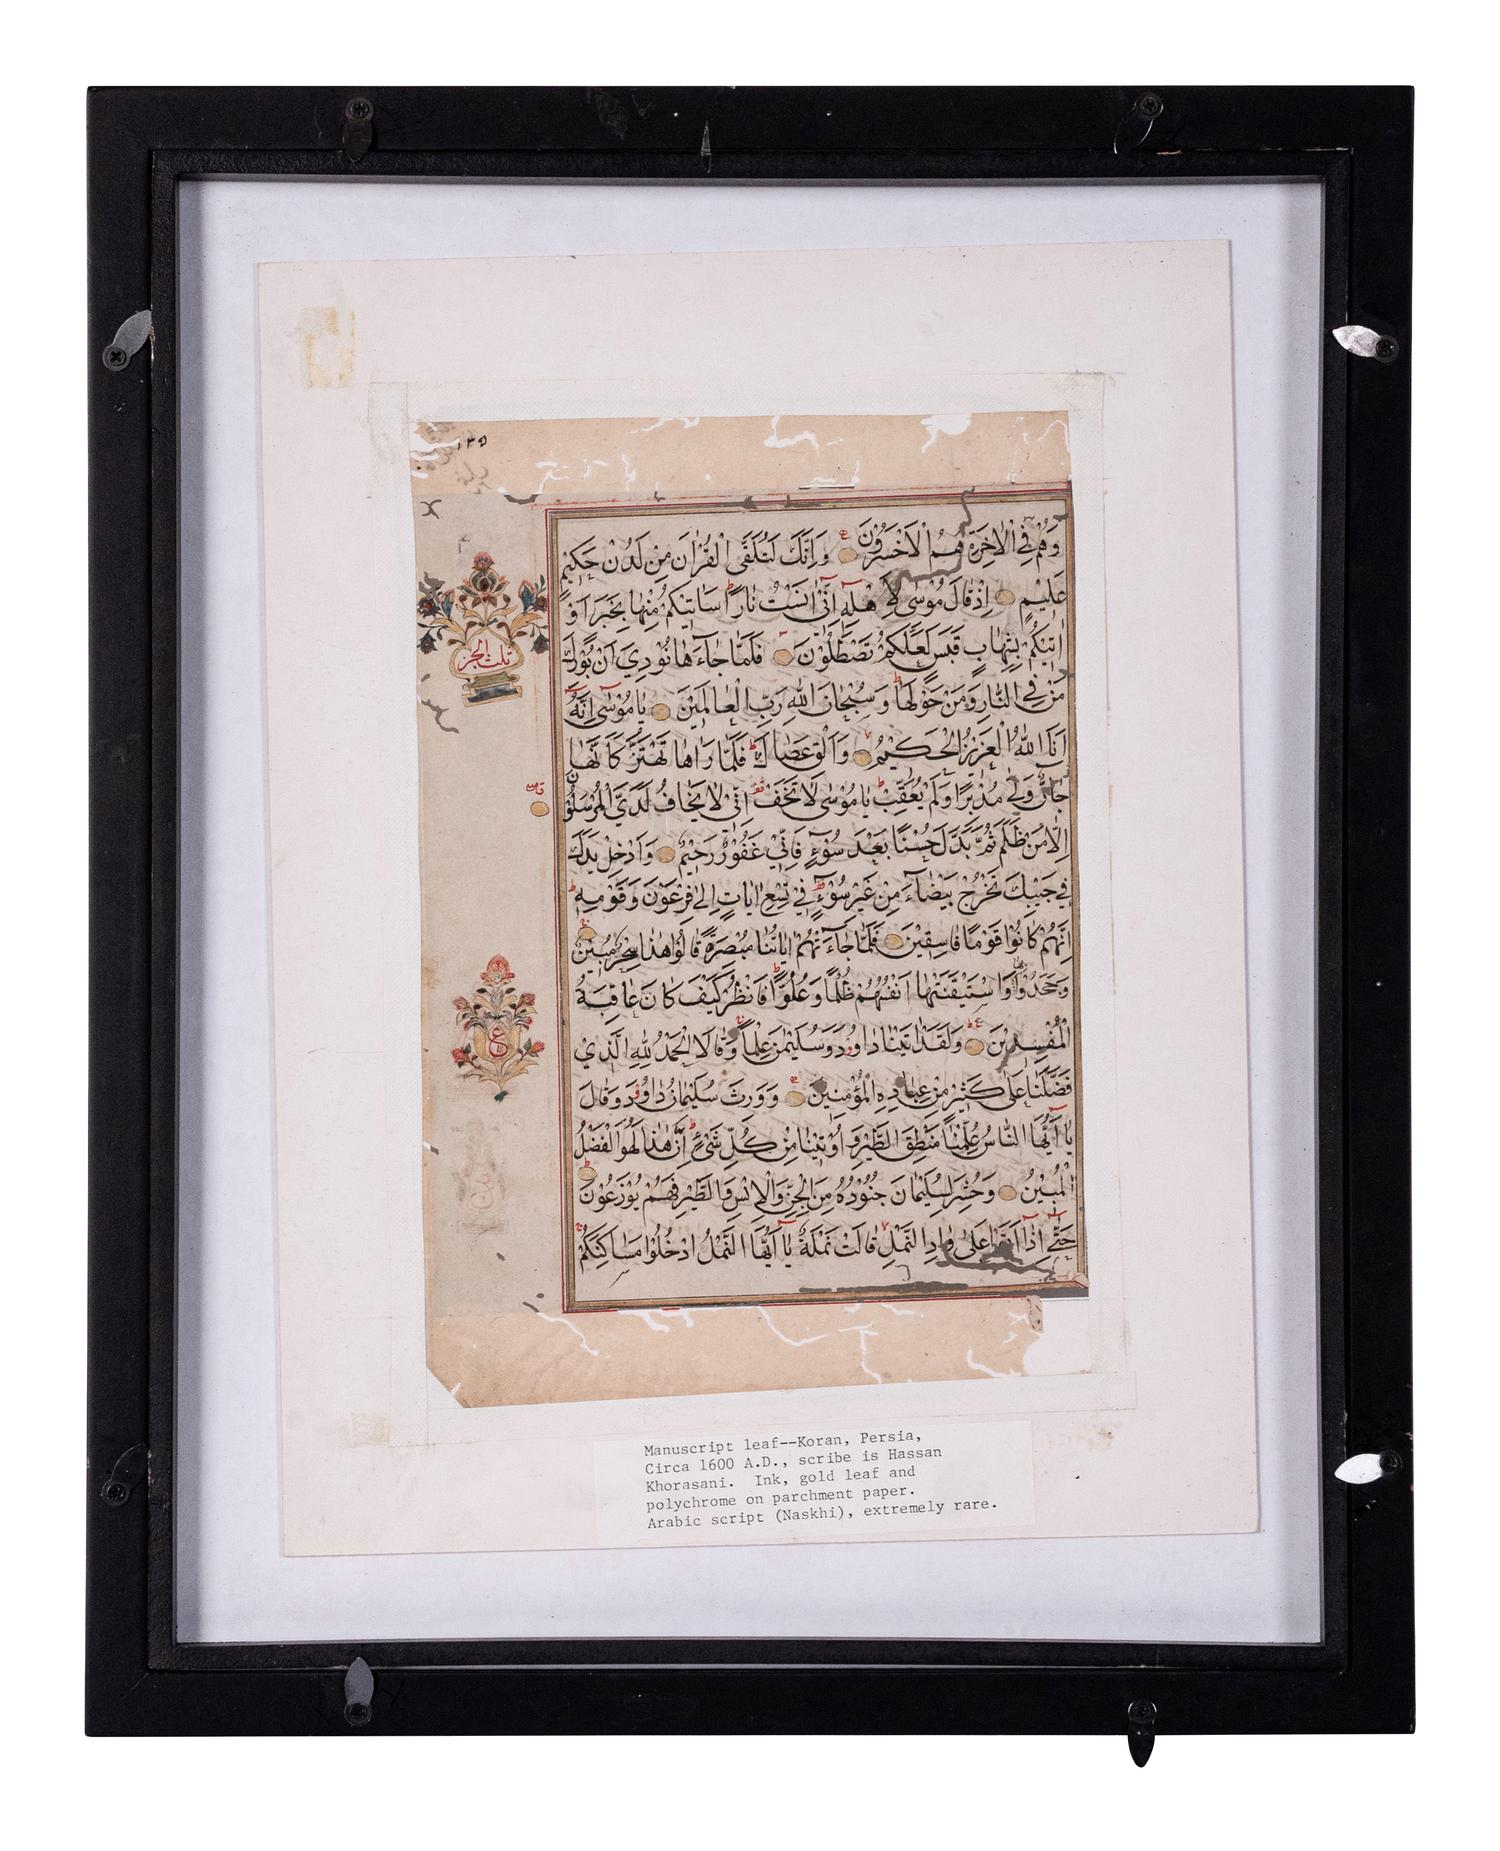 ١٣٥
وَهُمْ فِي الْاٰخِرَةِ هُمُ الْاَخْسَرُوْنَ ع وَاِنَّكَ لَتُلَقَّى الْقُرْاٰنَ مِنْ لَدُنْ حَكِيْمٍ
عَلِيْمٍ اِذْ قَالَ مُوْسٰى لِاَهْلِهٖ اِنِّىْ اٰنَسْتُ نَارًا سَاٰتِيْكُمْ مِنْهَا بِخَبَرٍ اَوْ
اٰتِيْكُمْ بِشِهَابٍ قَبَسٍ لَعَلَّكُمْ تَصْطَلُوْنَ فَلَمَّا جَاءَهَا نُوْدِيَ اَنْ بُوْرِكَ
مَنْ فِي النَّارِ وَمَنْ حَوْلَهَا ط وَسُبْحَانَ اللهِ رَبِّ الْعَالَمِيْنَ يَا مُوْسٰى اِنَّهُ
اَنَا اللهُ الْعَزِيْزُ الْحَكِيْمُ وَاَلْقِ عَصَاكَ ط فَلَمَّا رَاٰهَا تَهْتَزُّ كَاَنَّهَا
جَانٌّ وَلّٰى مُدْبِرًا وَلَمْ يُعَقِّبْ ط يَا مُوْسٰى لَا تَخَفْ اِنِّىْ لَا يَخَافُ لَدَيَّ الْمُرْسَلُوْنَ
اِلَّا مَنْ ظَلَمَ ثُمَّ بَدَّلَ حُسْنًا بَعْدَ سُوْءٍ فَاِنِّىْ غَفُوْرٌ رَحِيْمٌ وَاَدْخِلْ يَدَكَ
فِيْ جَيْبِكَ تَخْرُجْ بَيْضَاءَ مِنْ غَيْرِ سُوْءٍ فِيْ تِسْعِ اٰيَاتٍ اِلٰى فِرْعَوْنَ وَقَوْمِهٖ ط
اِنَّهُمْ كَانُوْا قَوْمًا فَاسِقِيْنَ فَلَمَّا جَاءَتْهُمْ اٰيَاتُنَا مُبْصِرَةً قَالُوْا هٰذَا سِحْرٌ مُبِيْنٌ
وَجَحَدُوْا بِهَا وَاسْتَيْقَنَتْهَا اَنْفُسُهُمْ ظُلْمًا وَعُلُوًّا ط فَانْظُرْ كَيْفَ كَانَ عَاقِبَةُ
الْمُفْسِدِيْنَ ع وَلَقَدْ اٰتَيْنَا دَاوُدَ وَسُلَيْمٰنَ عِلْمًا وَقَالَا الْحَمْدُ لِلّٰهِ الَّذِيْ
فَضَّلَنَا عَلٰى كَثِيْرٍ مِنْ عِبَادِهِ الْمُؤْمِنِيْنَ وَوَرِثَ سُلَيْمَانُ دَاوُدَ وَقَالَ
يَا اَيُّهَا النَّاسُ عُلِّمْنَا مَنْطِقَ الطَّيْرِ وَاُوْتِيْنَا مِنْ كُلِّ شَيْءٍ ط اِنَّ هٰذَا لَهُوَ الْفَضْلُ
الْمُبِيْنُ وَحُشِرَ لِسُلَيْمَانَ جُنُوْدُهُ مِنَ الْجِنِّ وَالْاِنْسِ وَالطَّيْرِ فَهُمْ يُوْزَعُوْنَ
حَتّٰى اِذَا اَتَوْا عَلٰى وَادِ النَّمْلِ قَالَتْ نَمْلَةٌ يَا اَيُّهَا النَّمْلُ ادْخُلُوْا مَسَاكِنَكُمْ
ثلث الجز
ع
Manuscript leaf--Koran, Persia,
Circa 1600 A.D., scribe is Hassan
Khorasani. Ink, gold leaf and
polychrome on parchment paper.
Arabic script (Naskhi), extremely rare.